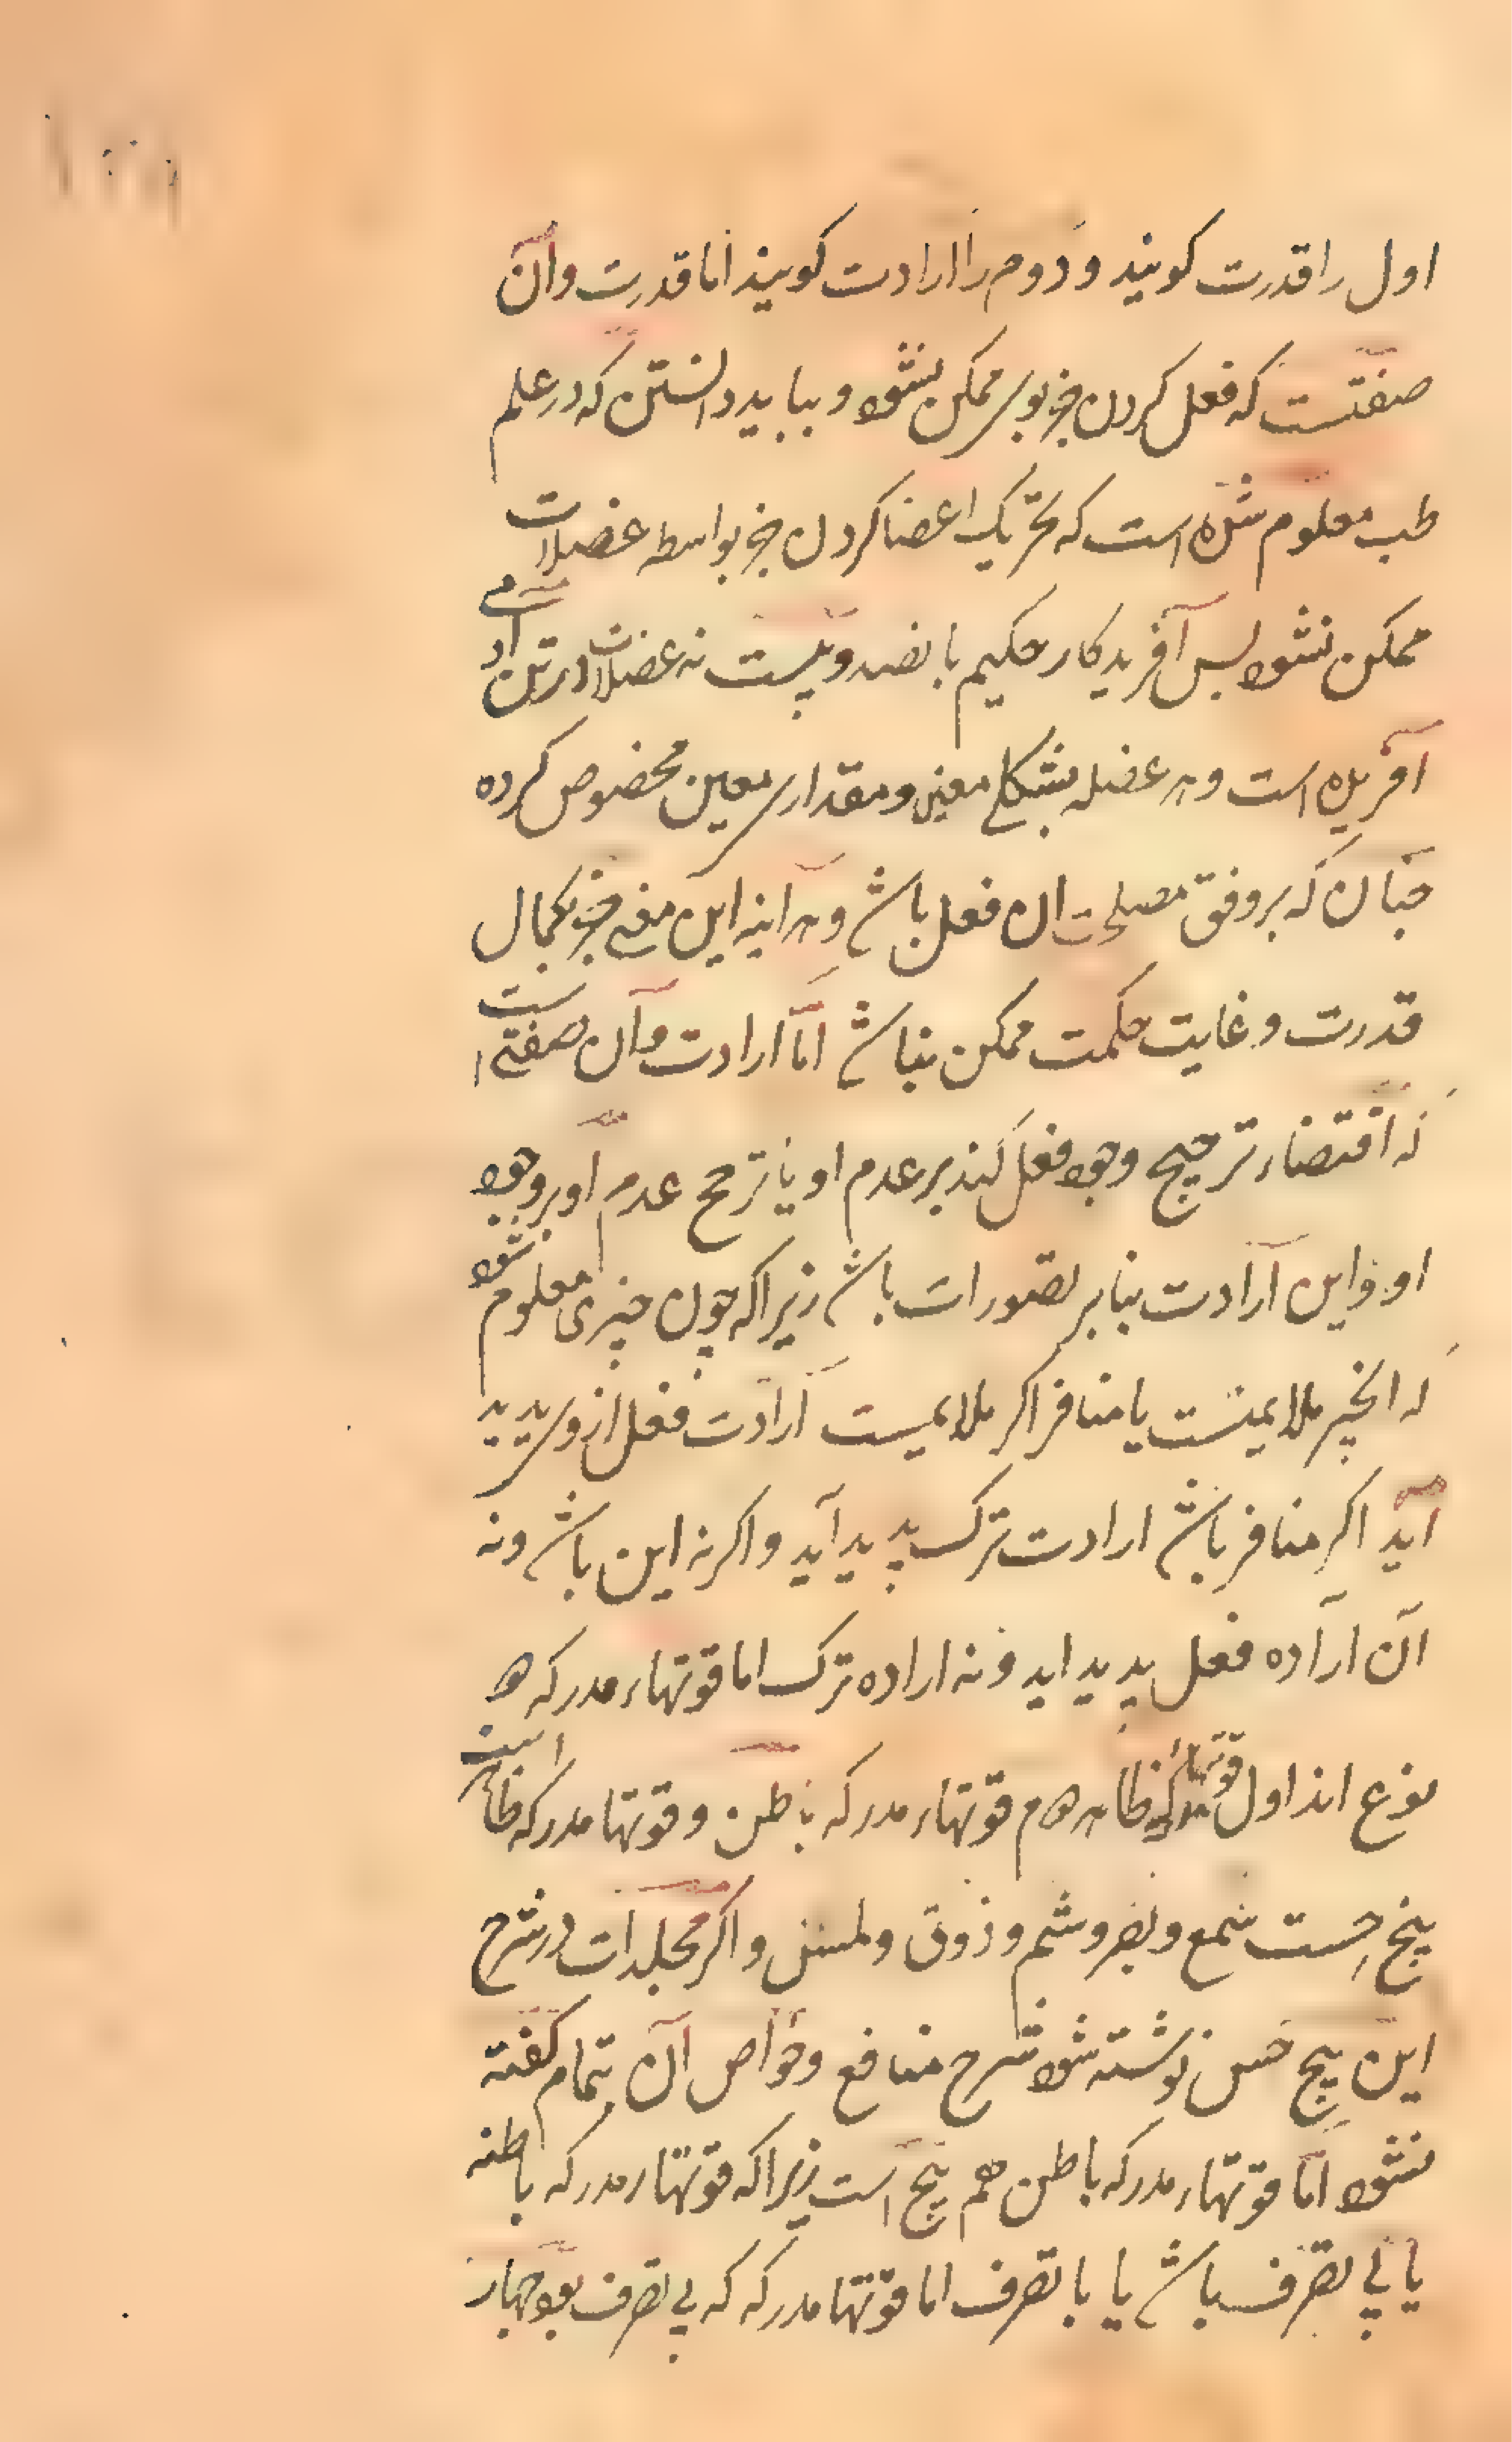 اول را قدرت کویند و دوم را ارادت کویند اما قدرت و آن
صفتست که فعل کردن جز بوی ممکن نشود و بباید دانستن که در علم
طب معلوم شده است که تحریک اعضا کردن جز بواسطه عضلات
ممکن نشود پس آفریدکار حکیم پانصد و بیست نه عضلات در تن آدمی
آفریده است و هر عضله بشکلی معین و مقداری معین مخصوص کرده
چنان که بر وفق مصلحت ان فعل باشد و هر آینه این معنی جز بکمال
قدرت و غایت حکمت ممکن نباشد اما ارادت و آن صفتی است
که اقتضاء ترجیح وجود فعل کند بر عدم او یا ترجیح عدم او بر وجود
او و این ارادت بنا بر تصورات باشد زیرا که چون چیزی معلوم شود
که انچیز ملایمست یا منافر اکر ملایمست ارادت فعل از وی پدید
آید اکر منافر باشد ارادت ترک پدید آید و اکر نه این باشد و نه
آن اراده فعل پدید اید و نه اراده ترک اما قوتهاء مدرکه دو
نوع اند اول قوتهاء مدرکه ظاهر دوم قوتهاء مدرکه باطن و قوتها مدرکه ظاهر است
پنج حست سمع و بصر و شم و ذوق و لمس و اکر مجلدات در شرح
این پنج حس نوشته شود شرح منافع و خواص آن بتمام کفته
نشود اما قوتهاء مدرکه باطن هم پنج است زیرا که قوتهاء مدرکه باطنه
یا بی تصرف باشد یا با تصرف اما قوتها مدرکه که بی تصرف بود چهار